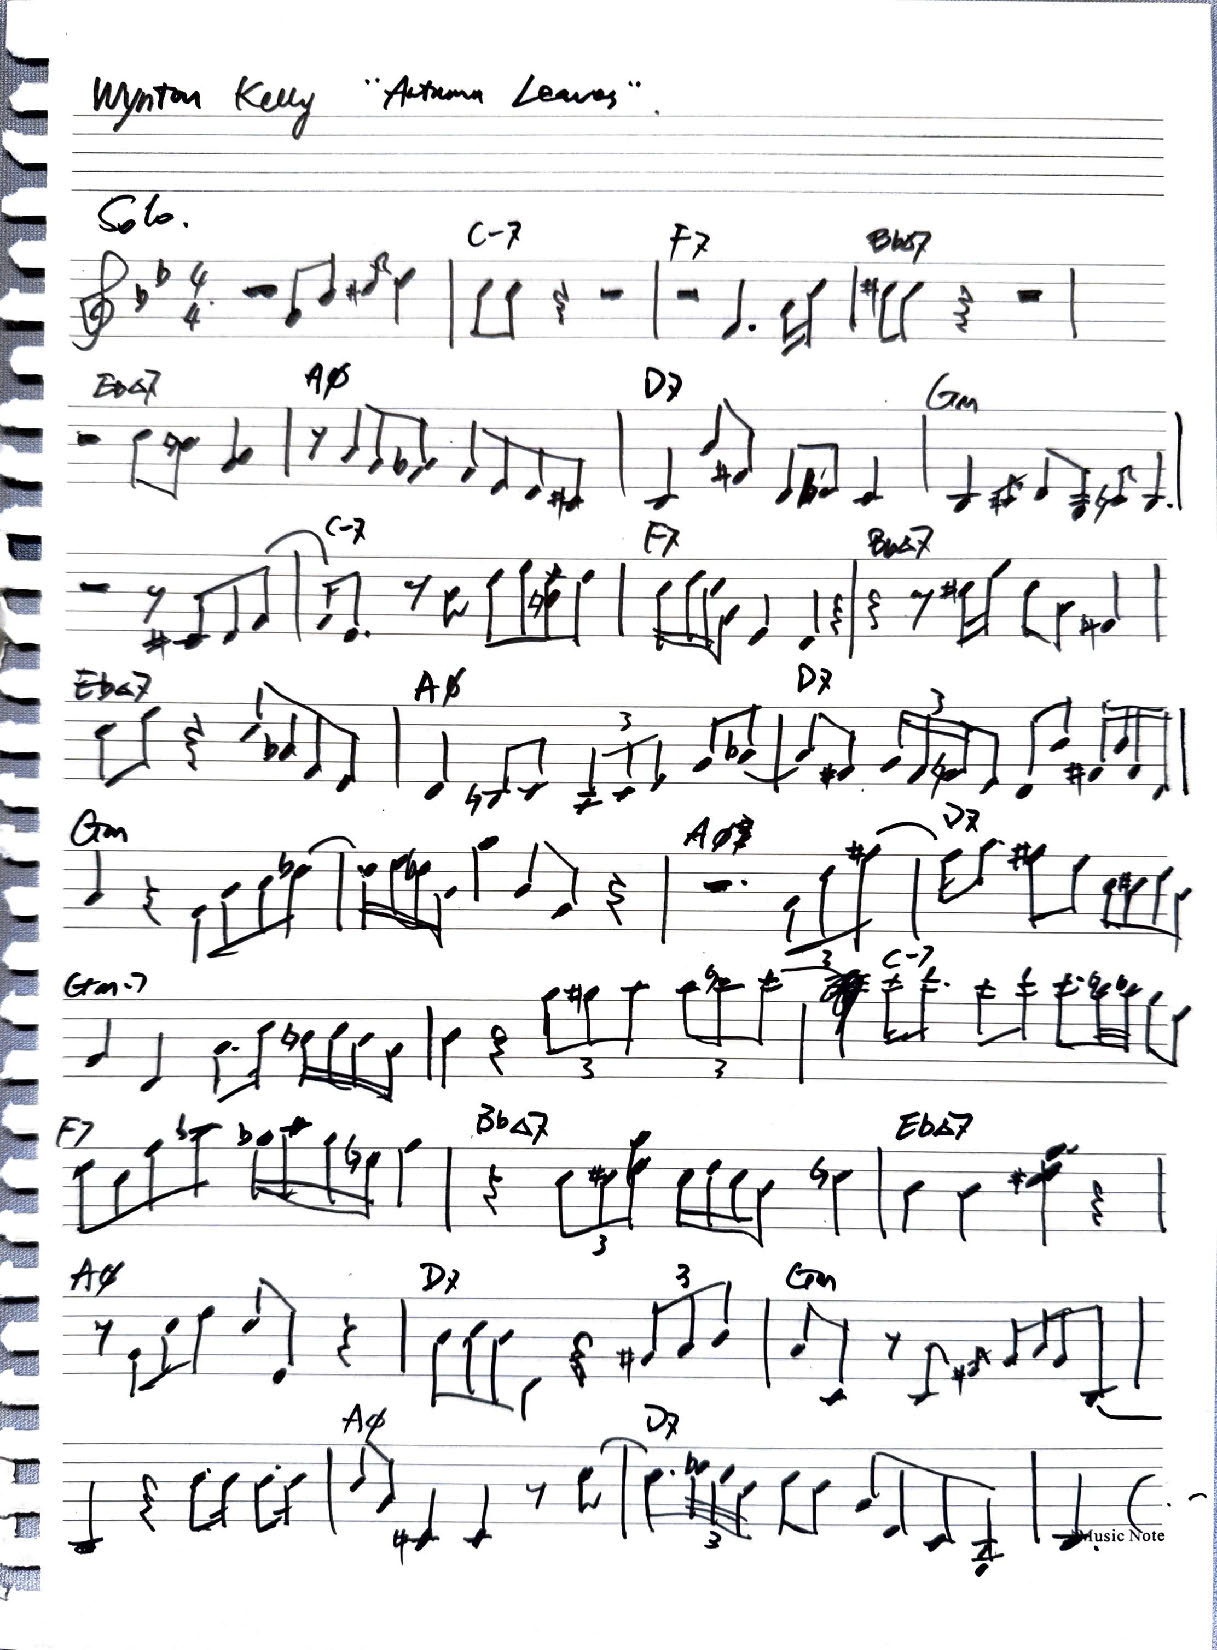 Wynton Kelly "Autumn Leaves".
Solo.
C-7 F7 Bb△7
4
4
Eb△7 Aø D7 Gm
C-7 F7 Bb△7
Eb△7 Aø D7
3 3
Gm Aø7 D7
Gm-7 3 C-7
3 3
F7 Bb△7 Eb△7
3
Aø D7 3 Gm
Aø D7
3
Music Note